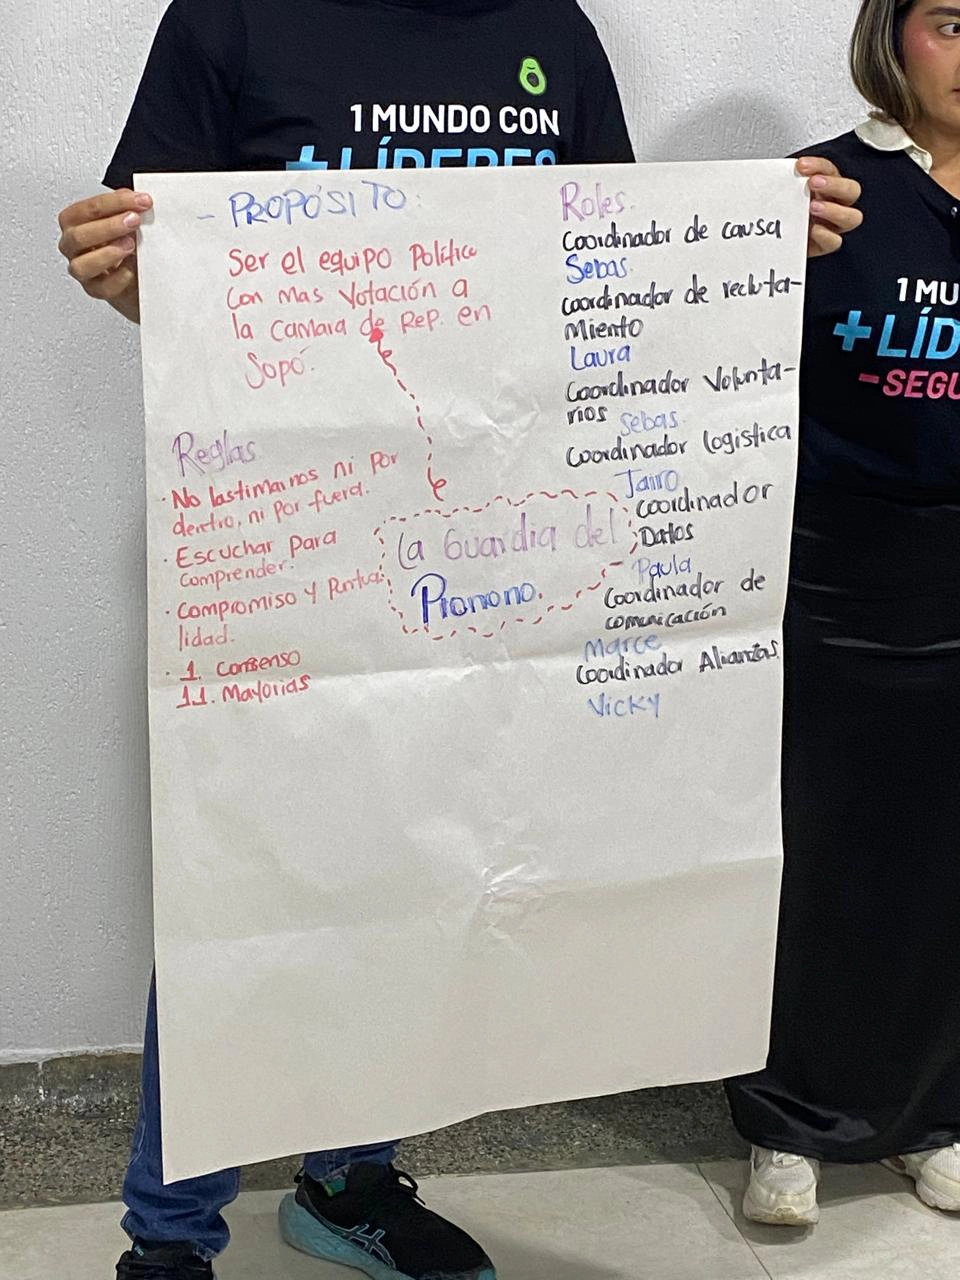 1 MUNDO CON
+ LÍDERES
- PROPÓSITO:
Ser el equipo Político
Con mas Votación a
la camara de Rep. en
Sopó.
Reglas
· No lastimarnos ni por
dentro, ni por fuera.
· Escuchar para
comprender.
· Compromiso y Puntua
lidad.
· 1. Consenso
11. Mayorias
La Guardia del
Pionono.
Roles.
Coordinador de causa
Sebas.
coordinador de recluta-
miento
Laura
Coordinador Volunta-
rios Sebas.
Coordinador logistica
Jairo
Coordinador
Datos
Paula
Coordinador de
comunicación
Marce
Coordinador Alianzas.
Vicky
1 MU
+ LÍD
- SEGU